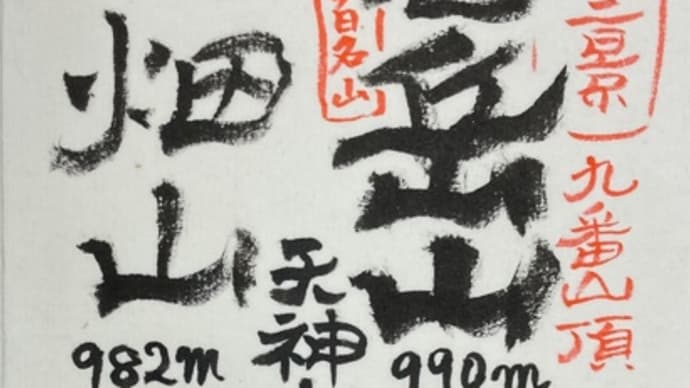 九番山頂
岳山
990m
百名山
天神
畑山
982m